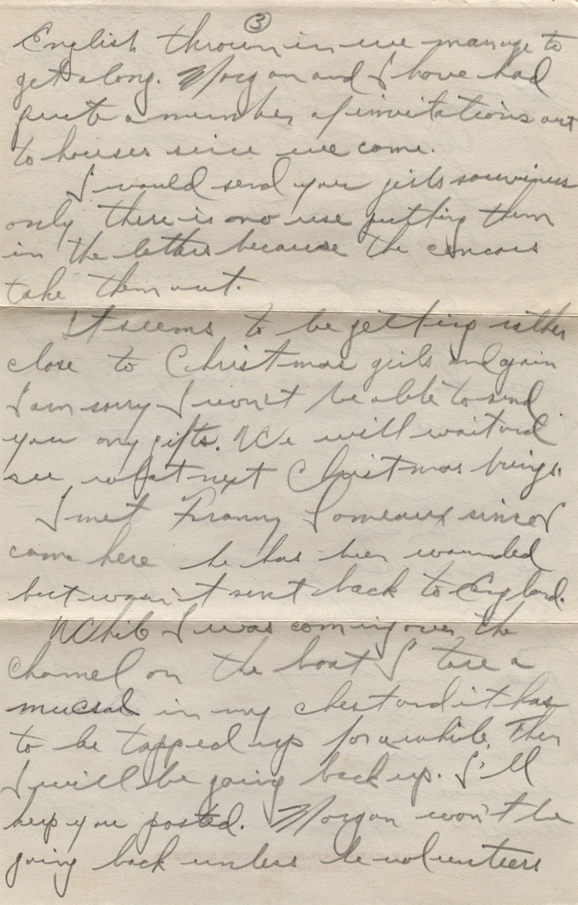 ③
English thrown in we manage to
get along. Morgan and I have had
quite a number of invitations out
to houses since we come.
I would send you girls souviners
only there is no use putting them
in the letters because the cencors
take them out.
It seems to be getting rather
close to Christmas girls and again
I am sorry I won't be able to send
you any gifts. We will wait and
see what next Christmas brings.
I met Franny since I
came here he has been wounded
but wasn't sent back to England.
While I was coming over the
channel on the boat I tore a
muscal in my chest and it has
to be tapped up for a while. Then
I will be going back up. I'll
keep you posted. Morgan won't be
going back unless he volunteers